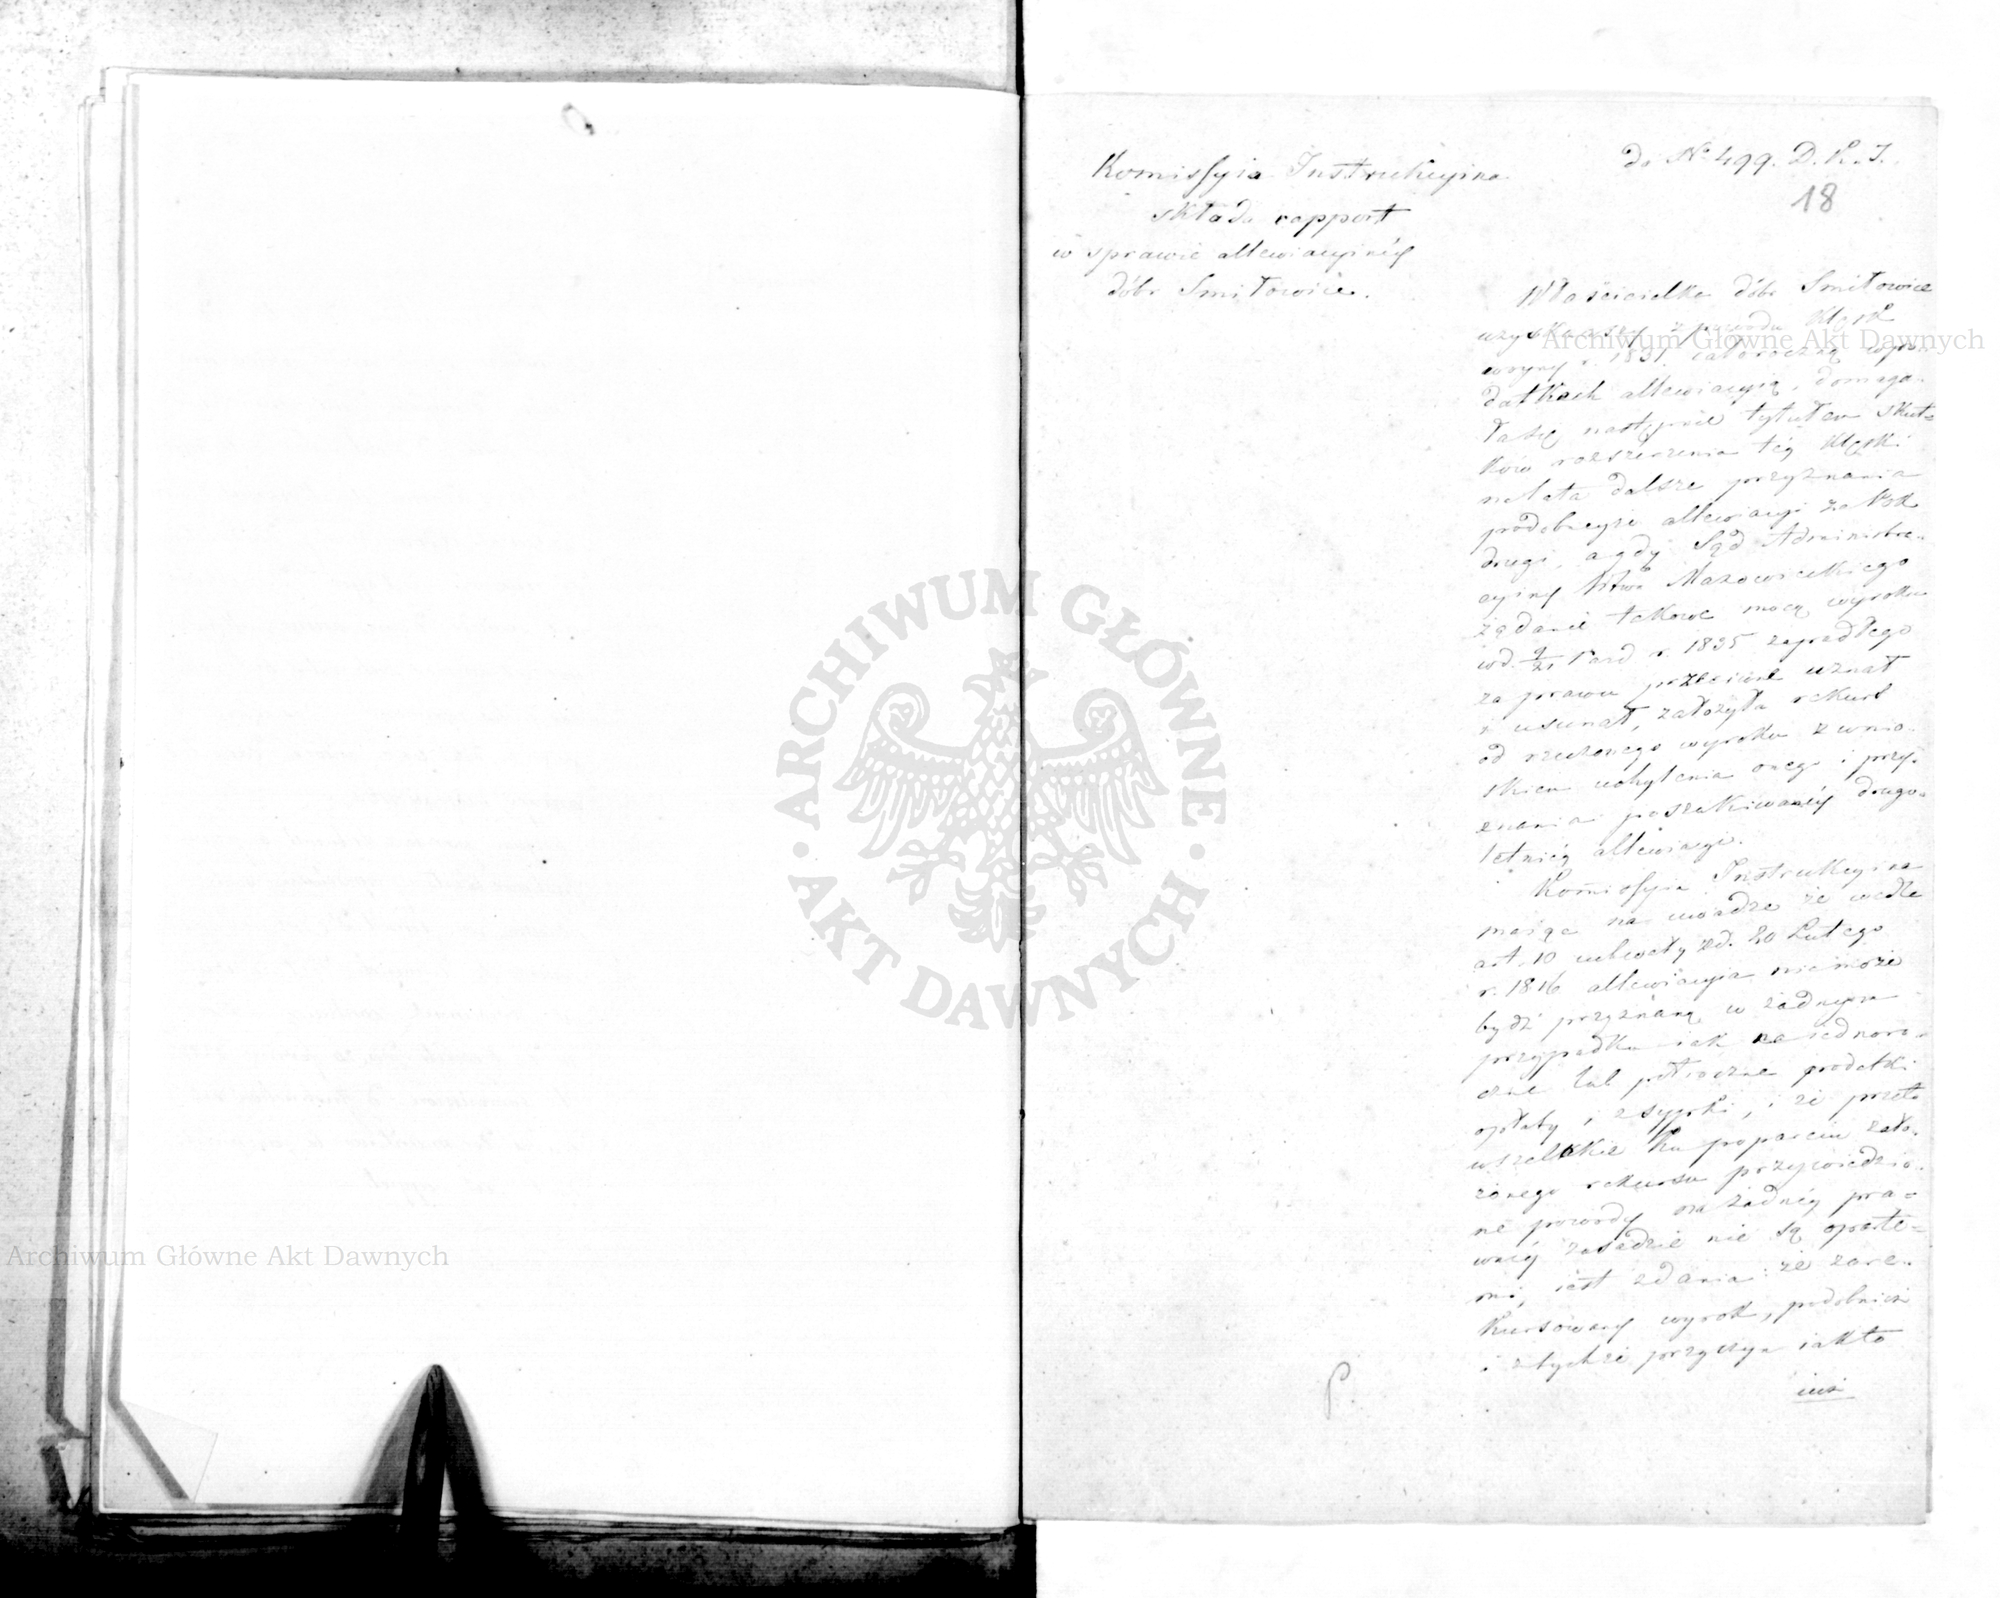 do No 499. D. K. I.
18
Komissyia Instrukcyina
składa rapport
w sprawie allewiacyinéy
dóbr Smiłowice.
Właścicielka dóbr Smiłowice
uzyskawszy z powodu klęsk
woyny r. 1831 całoroczną w po-
datkach allewiacyią, domaga-
ła się następnie tytułem skut-
ków rozszerzenia téy klęski
na lata dalsze przyznania
podobneyże allewiacyi za rok
drugi, a gdy Sąd Administra-
cyiny Wtwa Mazowieckiego
żądanie takowe mocą wyroku
w d. 9/21 Paźd r. 1835 zapadłego
za prawu przeciwne uznał
i usunął, założyła rekurs
od rzeczonego wyroku z wnio-
skiem uchylenia onego i przy-
znania poszukiwanéy drugo-
letniéy allewiacyi.
Komissyia Instrukcyina
maiąc na uwadze że wedle
art. 10 uchwały z d. 20 Lutego
r. 1816 allewiacyia nie może
bydź przyznaną w żadnym
przypadku iak na iednoro-
czne lub półroczne podatki
opłaty i zsypki, i że przeto
wszelkie ku poparciu zało-
żonego rekursu przywiedzio-
ne powody na żadnéy pra-
wnéy zasadzie nie są oparte-
mi, iest zdania: że zare-
kursowany wyrok, podobnież
i z tychże przyczyn iak to
iuż
Archiwum Główne Akt Dawnych
Archiwum Główne Akt Dawnych
ARCHIWUM GŁÓWNE
AKT DAWNYCH